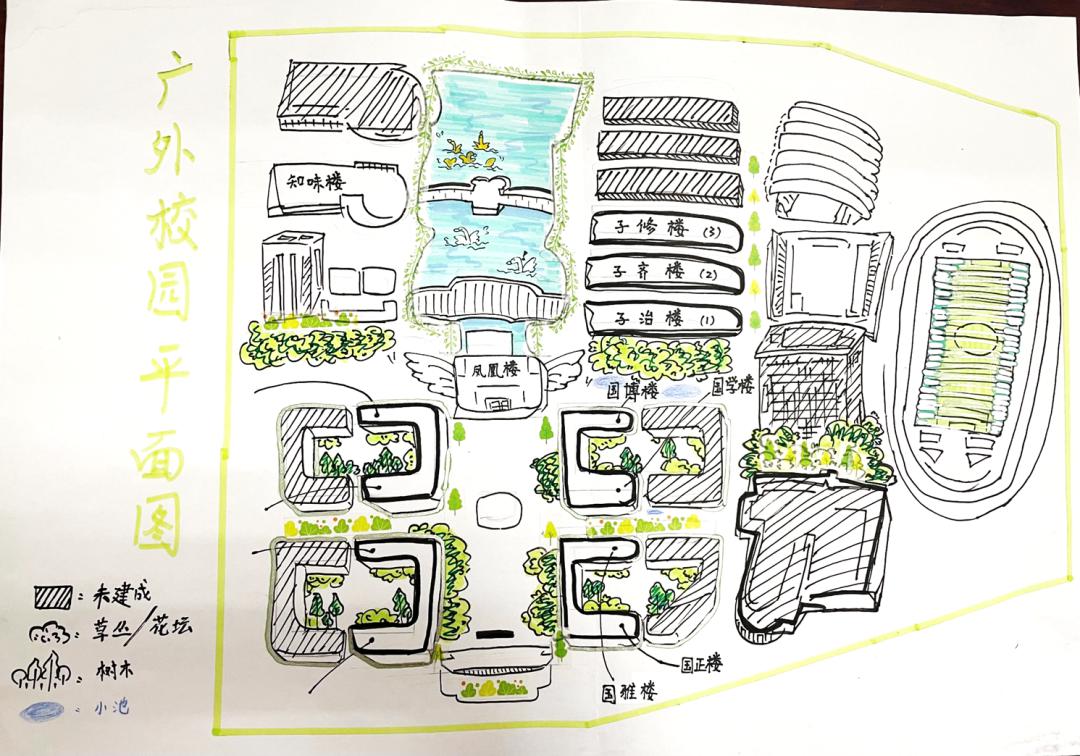 广外校园平面图
知味楼
子修楼(3)
子齐楼(2)
子治楼(1)
凤凰楼
国博楼
国学楼
国正楼
国雅楼
:未建成
:草丛/花坛
:树木
:小池